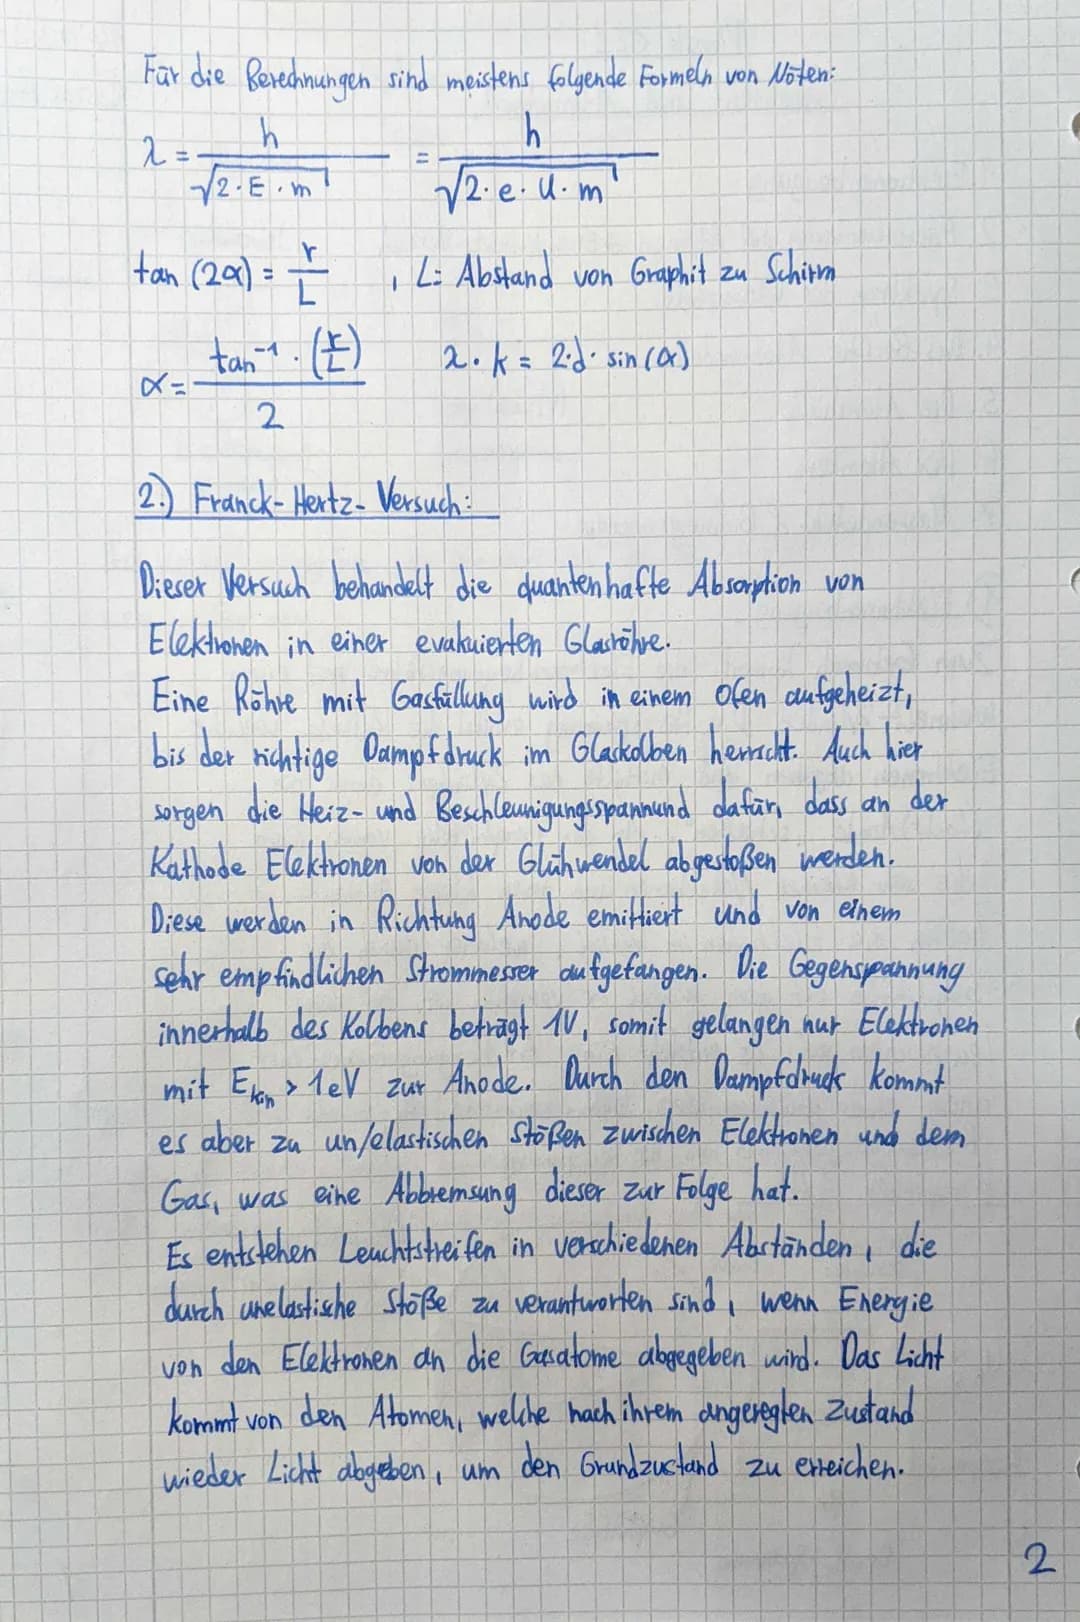 Für die Berechnungen sind meistens folgende Formeln von Nöten:
λ = h / √(2·E·m) = h / √(2·e·U·m)
tan (2α) = r / L , L: Abstand von Graphit zu Schirm
α = tan⁻¹ · (r/L) / 2    λ · k = 2·d· sin (α)
2.) Franck-Hertz-Versuch:
Dieser Versuch behandelt die quantenhafte Absorption von
Elektronen in einer evakuierten Glasröhre.
Eine Röhre mit Gasfüllung wird in einem Ofen aufgeheizt,
bis der richtige Dampfdruck im Glaskolben herrscht. Auch hier
sorgen die Heiz- und Beschleunigungsspannund dafür, dass an der
Kathode Elektronen von der Glühwendel abgestoßen werden.
Diese werden in Richtung Anode emittiert und von einem
sehr empfindlichen Strommesser aufgefangen. Die Gegenspannung
innerhalb des Kolbens beträgt 1V, somit gelangen nur Elektronen
mit E_kin > 1eV zur Anode. Durch den Dampfdruck kommt
es aber zu un/elastischen Stößen zwischen Elektronen und dem
Gas, was eine Abbremsung dieser zur Folge hat.
Es entstehen Leuchtstreifen in verschiedenen Abständen, die
durch unelastische Stöße zu verantworten sind, wenn Energie
von den Elektronen an die Gasatome abgegeben wird. Das Licht
kommt von den Atomen, welche nach ihrem angeregten Zustand
wieder Licht abgeben, um den Grundzustand zu erreichen.
2